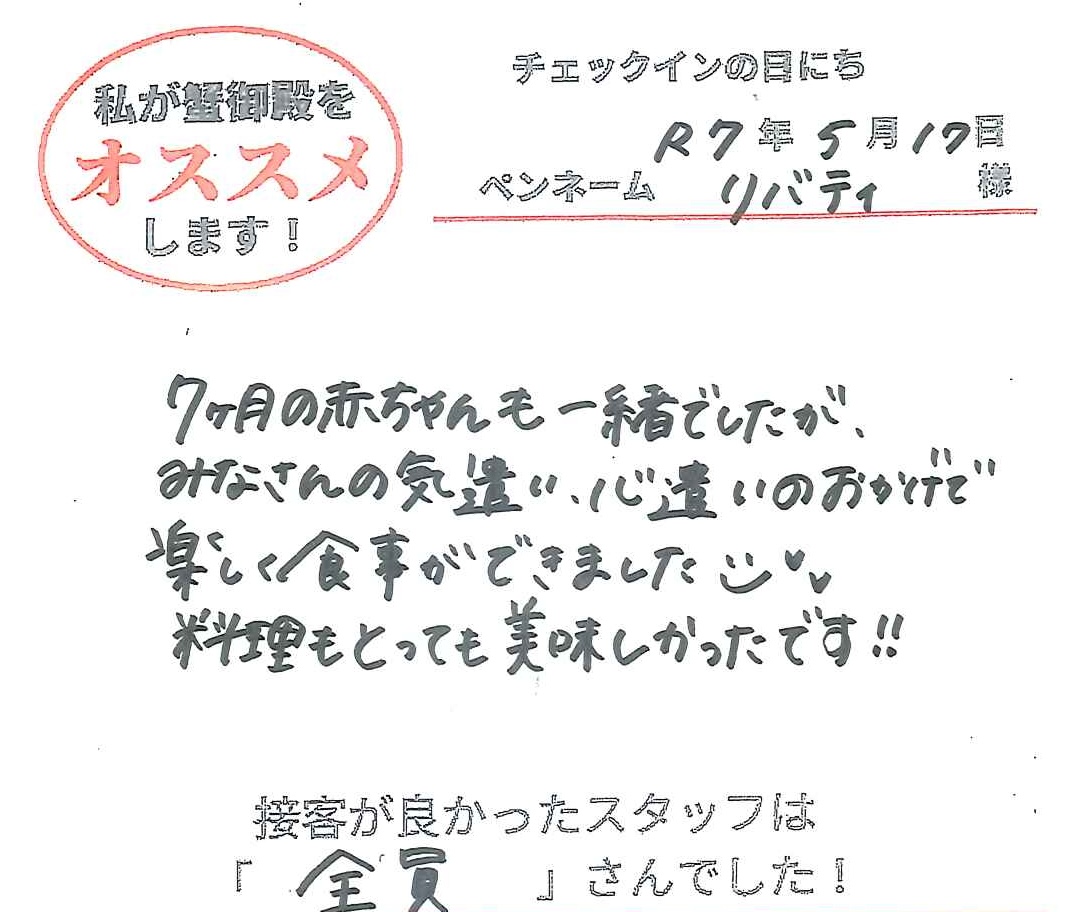 私が蟹御殿を
オススメ
します！
チェックインの日にち
R7年5月17日
ペンネーム リバティ 様
7ヶ月の赤ちゃんも一緒でしたが、
みなさんの気遣い、心遣いのおかげで
楽しく食事ができました
料理もとっても美味しかったです!!
接客が良かったスタッフは
「 全員 」さんでした！